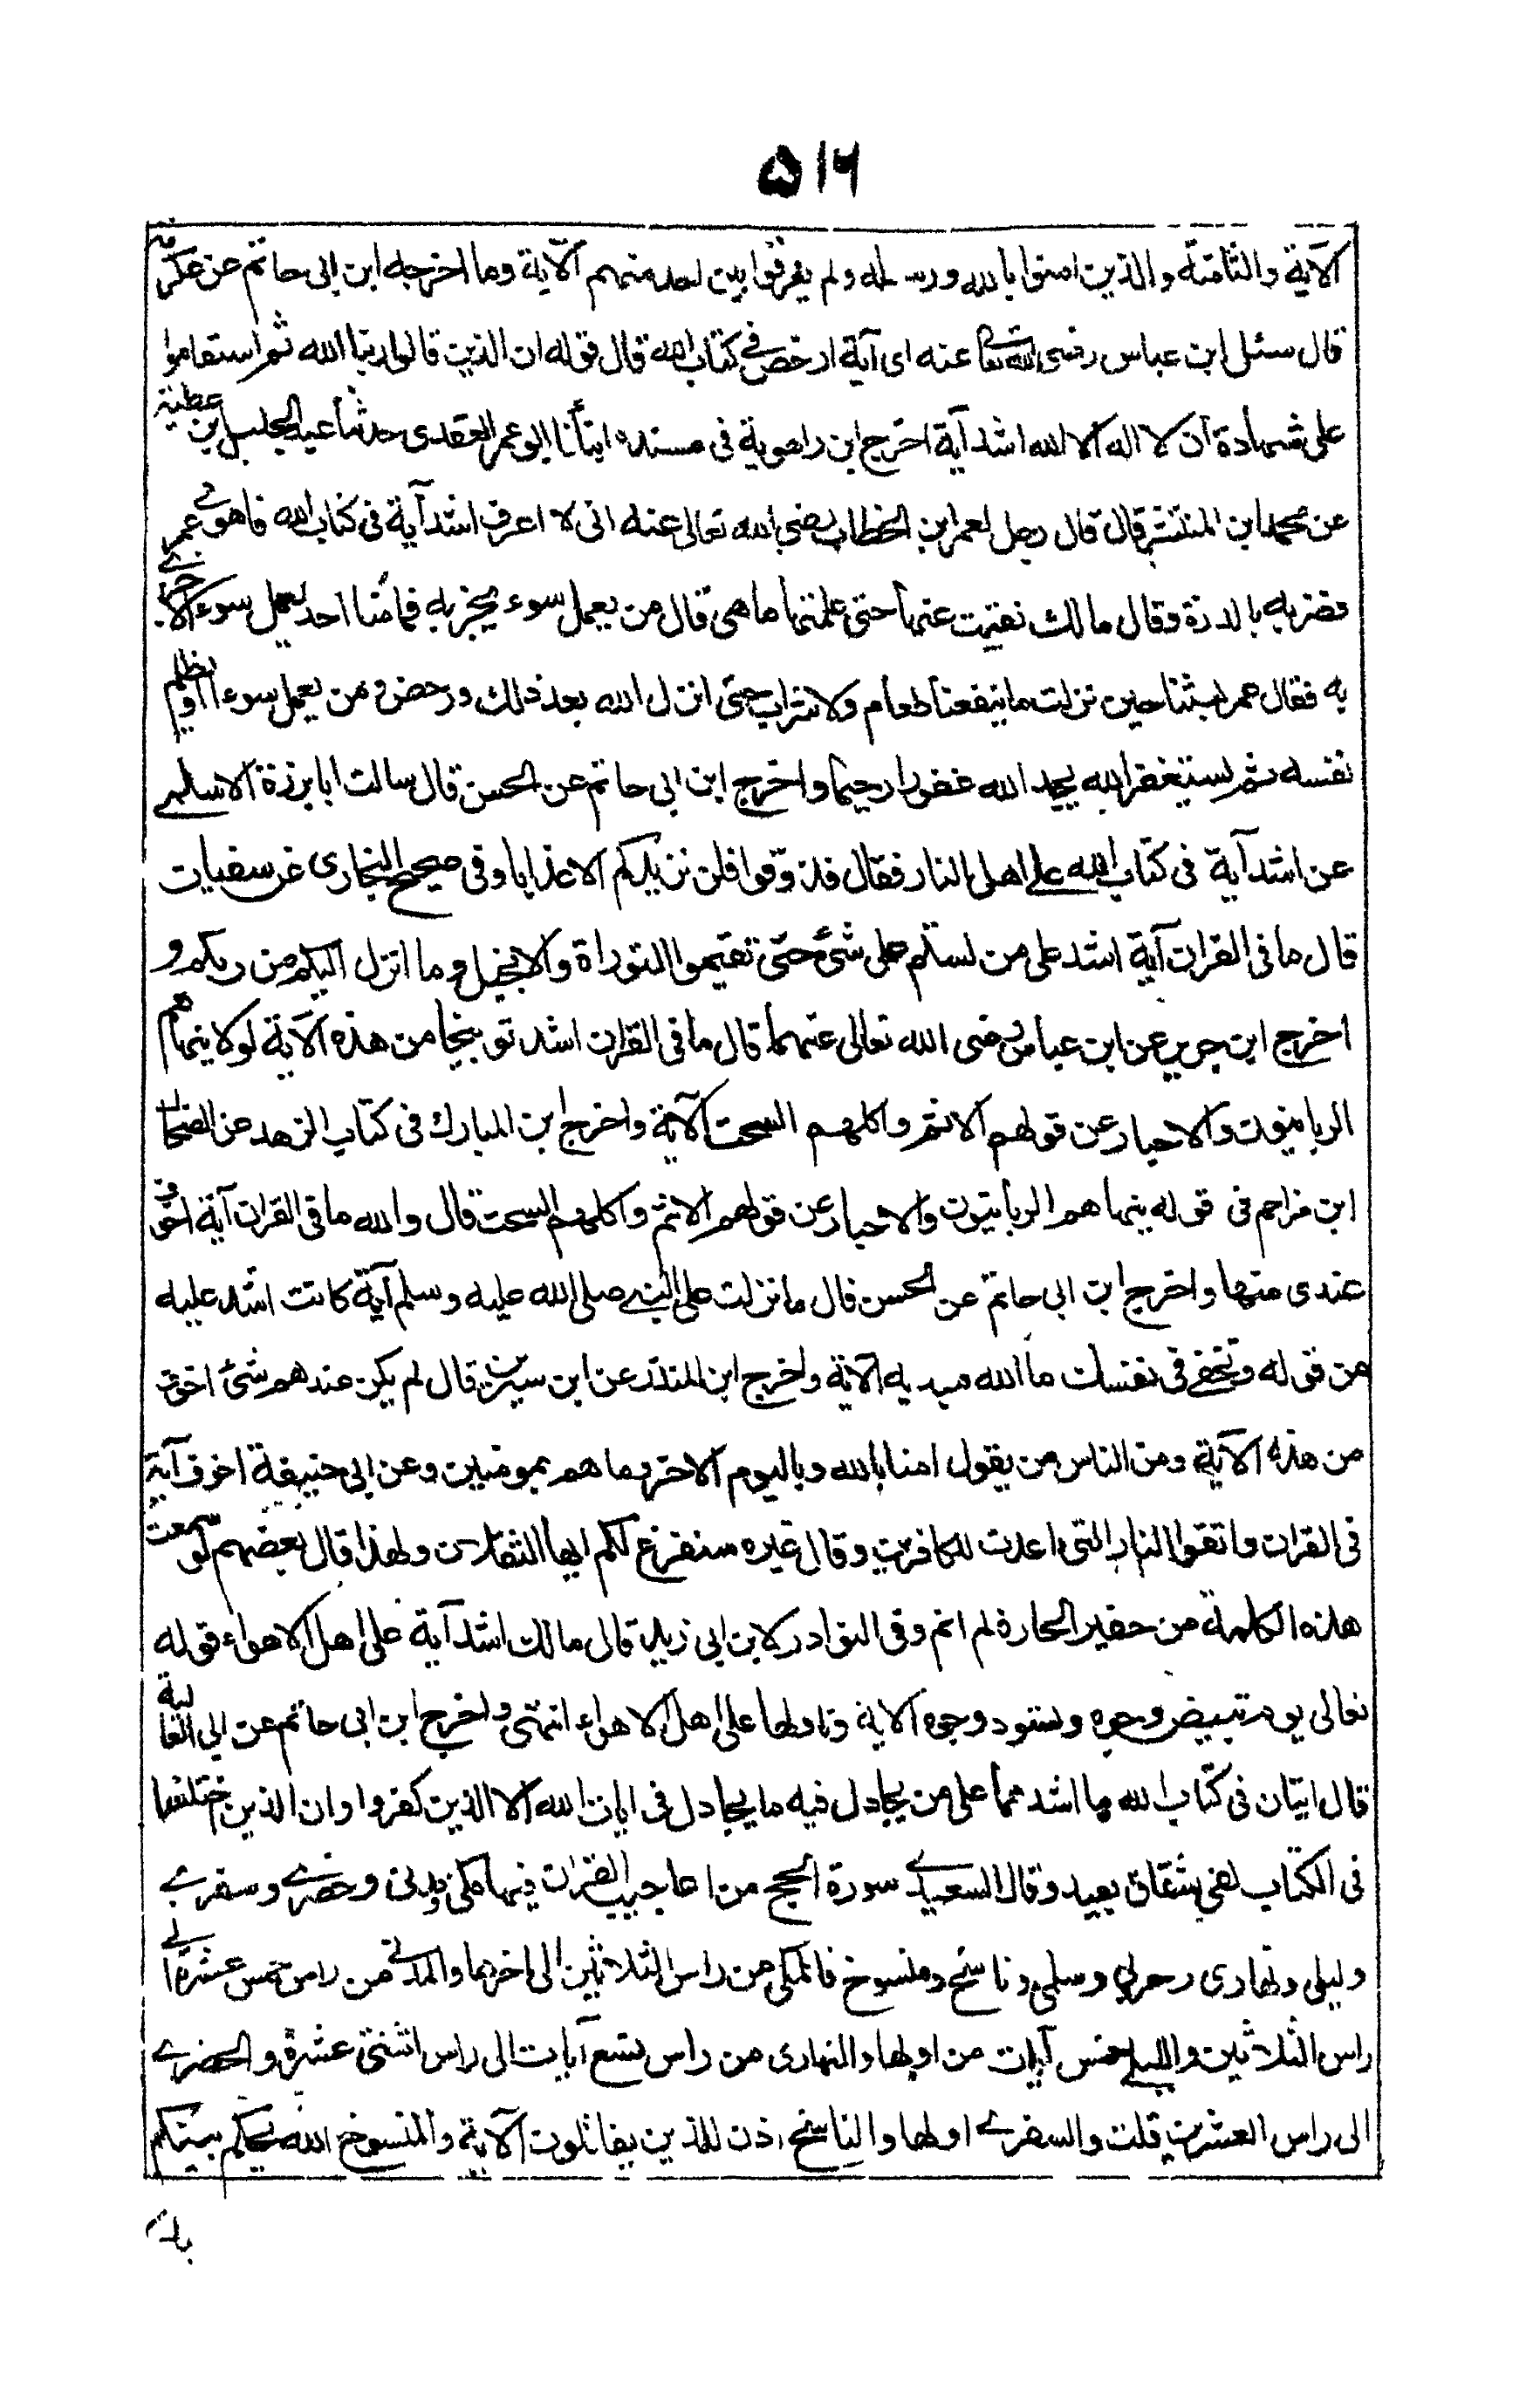 ۵۱۶
الآية والثامنة والذين امنوا بالله ورسله ولم يفرقوا بين احد منهم الآية وما اخرجه ابن ابى حاتم عن عكرمة
قال سئل ابن عباس رضى الله تعالى عنه اى آية ارخص فى كتاب الله قال قوله ان الذين قالوا ربنا الله ثم استقاموا
على شهادة ان لا اله الا الله اشد آية اخرج ابن راهوية فى مسنده انبأنا ابو عمر العقدى حدثنا عبد الجليل ابن عطية
عن محمد ابن المنتشر قال قال رجل لعمر ابن الخطاب رضى الله تعالى عنه انى لا اعرف اشد آية فى كتاب الله فاهوى عمر
فضربه بالدرة وقال مالك نقبت عنها حتى علمتها ما هى قال من يعمل سوء يجز به فما منا احد يعمل سوء الا جزى
به فقال عمر لبثنا حين نزلت ما ينفعنا طعام ولا شراب حتى انزل الله بعد ذلك ورخص ومن يعمل سوءا او يظلم
نفسه ثم يستغفر الله يجد الله غفورا رحيما واخرج ابن ابى حاتم عن الحسن قال سالت ابا برزة الاسلمى
عن اشد آية فى كتاب الله على اهل النار فقال فذوقوا فلن نزيدكم الا عذابا وفى صحيح البخارى عن سفيان
قال ما فى القران آية اشد على من لستم على شئ حتى تقيموا التوراة والانجيل وما انزل اليكم من ربكم و
اخرج ابن جرير عن ابن عباس رضى الله تعالى عنهما قال ما فى القران اشد توبيخا من هذه الآية لولا ينهاهم
الربانيون والاحبار عن قولهم الاثم واكلهم السحت الآية واخرج ابن المبارك فى كتاب الزهد عن الضحاك
ابن مزاحم فى قوله ينهاهم الربانيون والاحبار عن قولهم الاثم واكلهم السحت قال والله ما فى القران آية اخوف
عندى منها واخرج ابن ابى حاتم عن الحسن قال ما نزلت على النبى صلى الله عليه وسلم آية كانت اشد عليه
من قوله وتخفى فى نفسك ما الله مبديه الآية واخرج ابن المنذر عن ابن سيرين قال لم يكن عندهم شئ اخوف
من هذه الآية ومن الناس من يقول امنا بالله وباليوم الاخر وما هم بمومنين وعن ابى حنيفة اخوف آية
فى القران واتقوا النار التى اعدت للكافرين وقال غيره سنفرغ لكم ايها الثقلان ولهذا قال بعضهم لو سمعت
هذه الكلمة من حقير الحارة لم انم وفى النوادر لابن ابى زيد قال مالك اشد آية على اهل الاهواء قوله
تعالى يوم تبيض وجوه وتسود وجوه الآية وتاولها على اهل الاهواء انتهى واخرج ابن ابى حاتم عن ابى العالية
قال ايتان فى كتاب الله ما اشدهما على من يجادل فيه ما يجادل فى ايات الله الا الذين كفروا وان الذين اختلفوا
فى الكتاب لفى شقاق بعيد وقال السعيدى سورة الحج من اعاجيب القران فيها مكى ومدنى وحضرى وسفرى
وليلى ونهارى وحربى وسلمى وناسخ ومنسوخ فالمكى من راس الثلاثين الى اخرها والمدنى من راس خمس عشرة الى
راس الثلاثين والليلى خمس آيات من اولها والنهارى من راس تسع آيات الى راس اثنتى عشرة والحضرى
الى راس العشرين قلت والسفرى اولها والناسخ اذن للذين يقاتلون الآية والمنسوخ الله يحكم بينكم